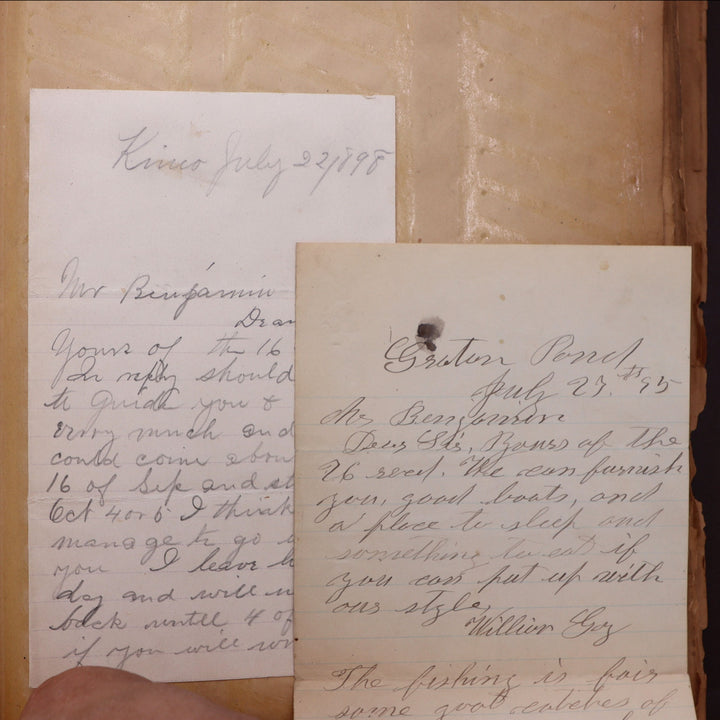 Kineo July 22/898
Mr Benjamin
Dear
Yours of th 16
In reply should
to Guide you &
verry much and
could come abou
16 of Sep and st
Oct 4 or 5 I think
manage to go
you I leave
day and will
back untill 4 of
if you will wr
Pond
July 27. 95
Mr Benjamin
Dear Sir, Yours of the
26 recd. We can furnish
you, good boats, and
a place to sleep and
something to eat if
you can put up with
our style,
William
The fishing is fair
some good catches of